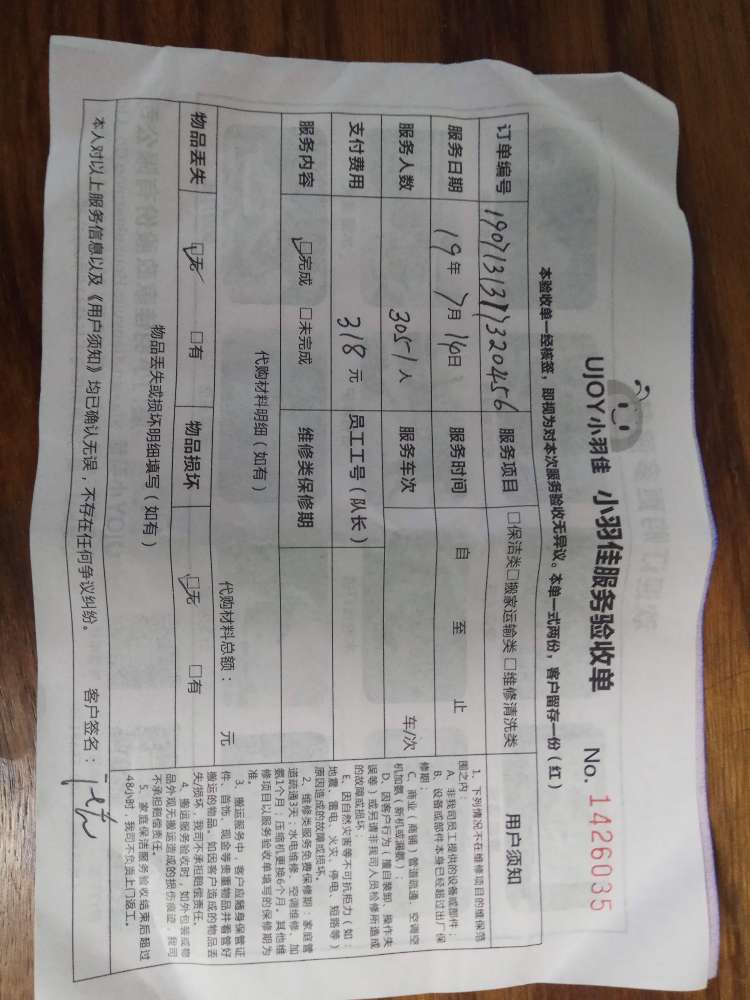 UJOY小羽佳 小羽佳服务验收单 No. 1426035
本验收单一经核签，即视为对本次服务验收无异议。本单一式两份，客户留存一份（红）
订单编号 服务项目 □保洁类□搬家运输类 □维修清洗类
服务日期 19年 7月 14日 服务时间 自 至 止
服务人数 3051人 服务车次 车/次
支付费用 318元 员工工号（队长）
服务内容 □完成 □未完成 维修类保修期
代购材料明细（如有） 代购材料总额： 元
物品丢失 □无 □有 物品损坏 □无 □有
物品丢失或损坏明细填写（如有）
用户须知
1、下列情况不在维修项目的维保范
围之内
A、非我司员工提供的设备或部件；
B、设备或部件本身已经超过出厂保
修期；
C、商业（商铺）管道疏通、空调空
机加氨（新机或漏氨）；
D、因客户行为（擅自装卸、操作失
误等）或另请非我司人员检修所造成
的故障或损坏.
E、因自然灾害等不可抗拒力（如：
地震、雷电、火灾、停电、短路等）
原因造成的故障或损坏.
2、维修类服务免费保修期：家庭管
道疏通3天；水电维修、空调维修、加
氨1个月；压缩机更换6个月，其他维
修项目以服务验收单填写的保修期为
准.
3、搬运服务中，客户应随身保管证
件、首饰、现金等贵重物品并看管好
搬运的物品。如因客户造成的物品丢
失/损坏，我司不承担赔偿责任.
4、搬运服务验收时，如外包装或物
品外观无搬运造成的损伤痕迹，我司
不承担赔偿责任.
5、家庭保洁服务验收结束后超过
48小时，我司不负责上门返工。
本人对以上服务信息以及《用户须知》均已确认无误，不存在任何争议纠纷。 客户签名：